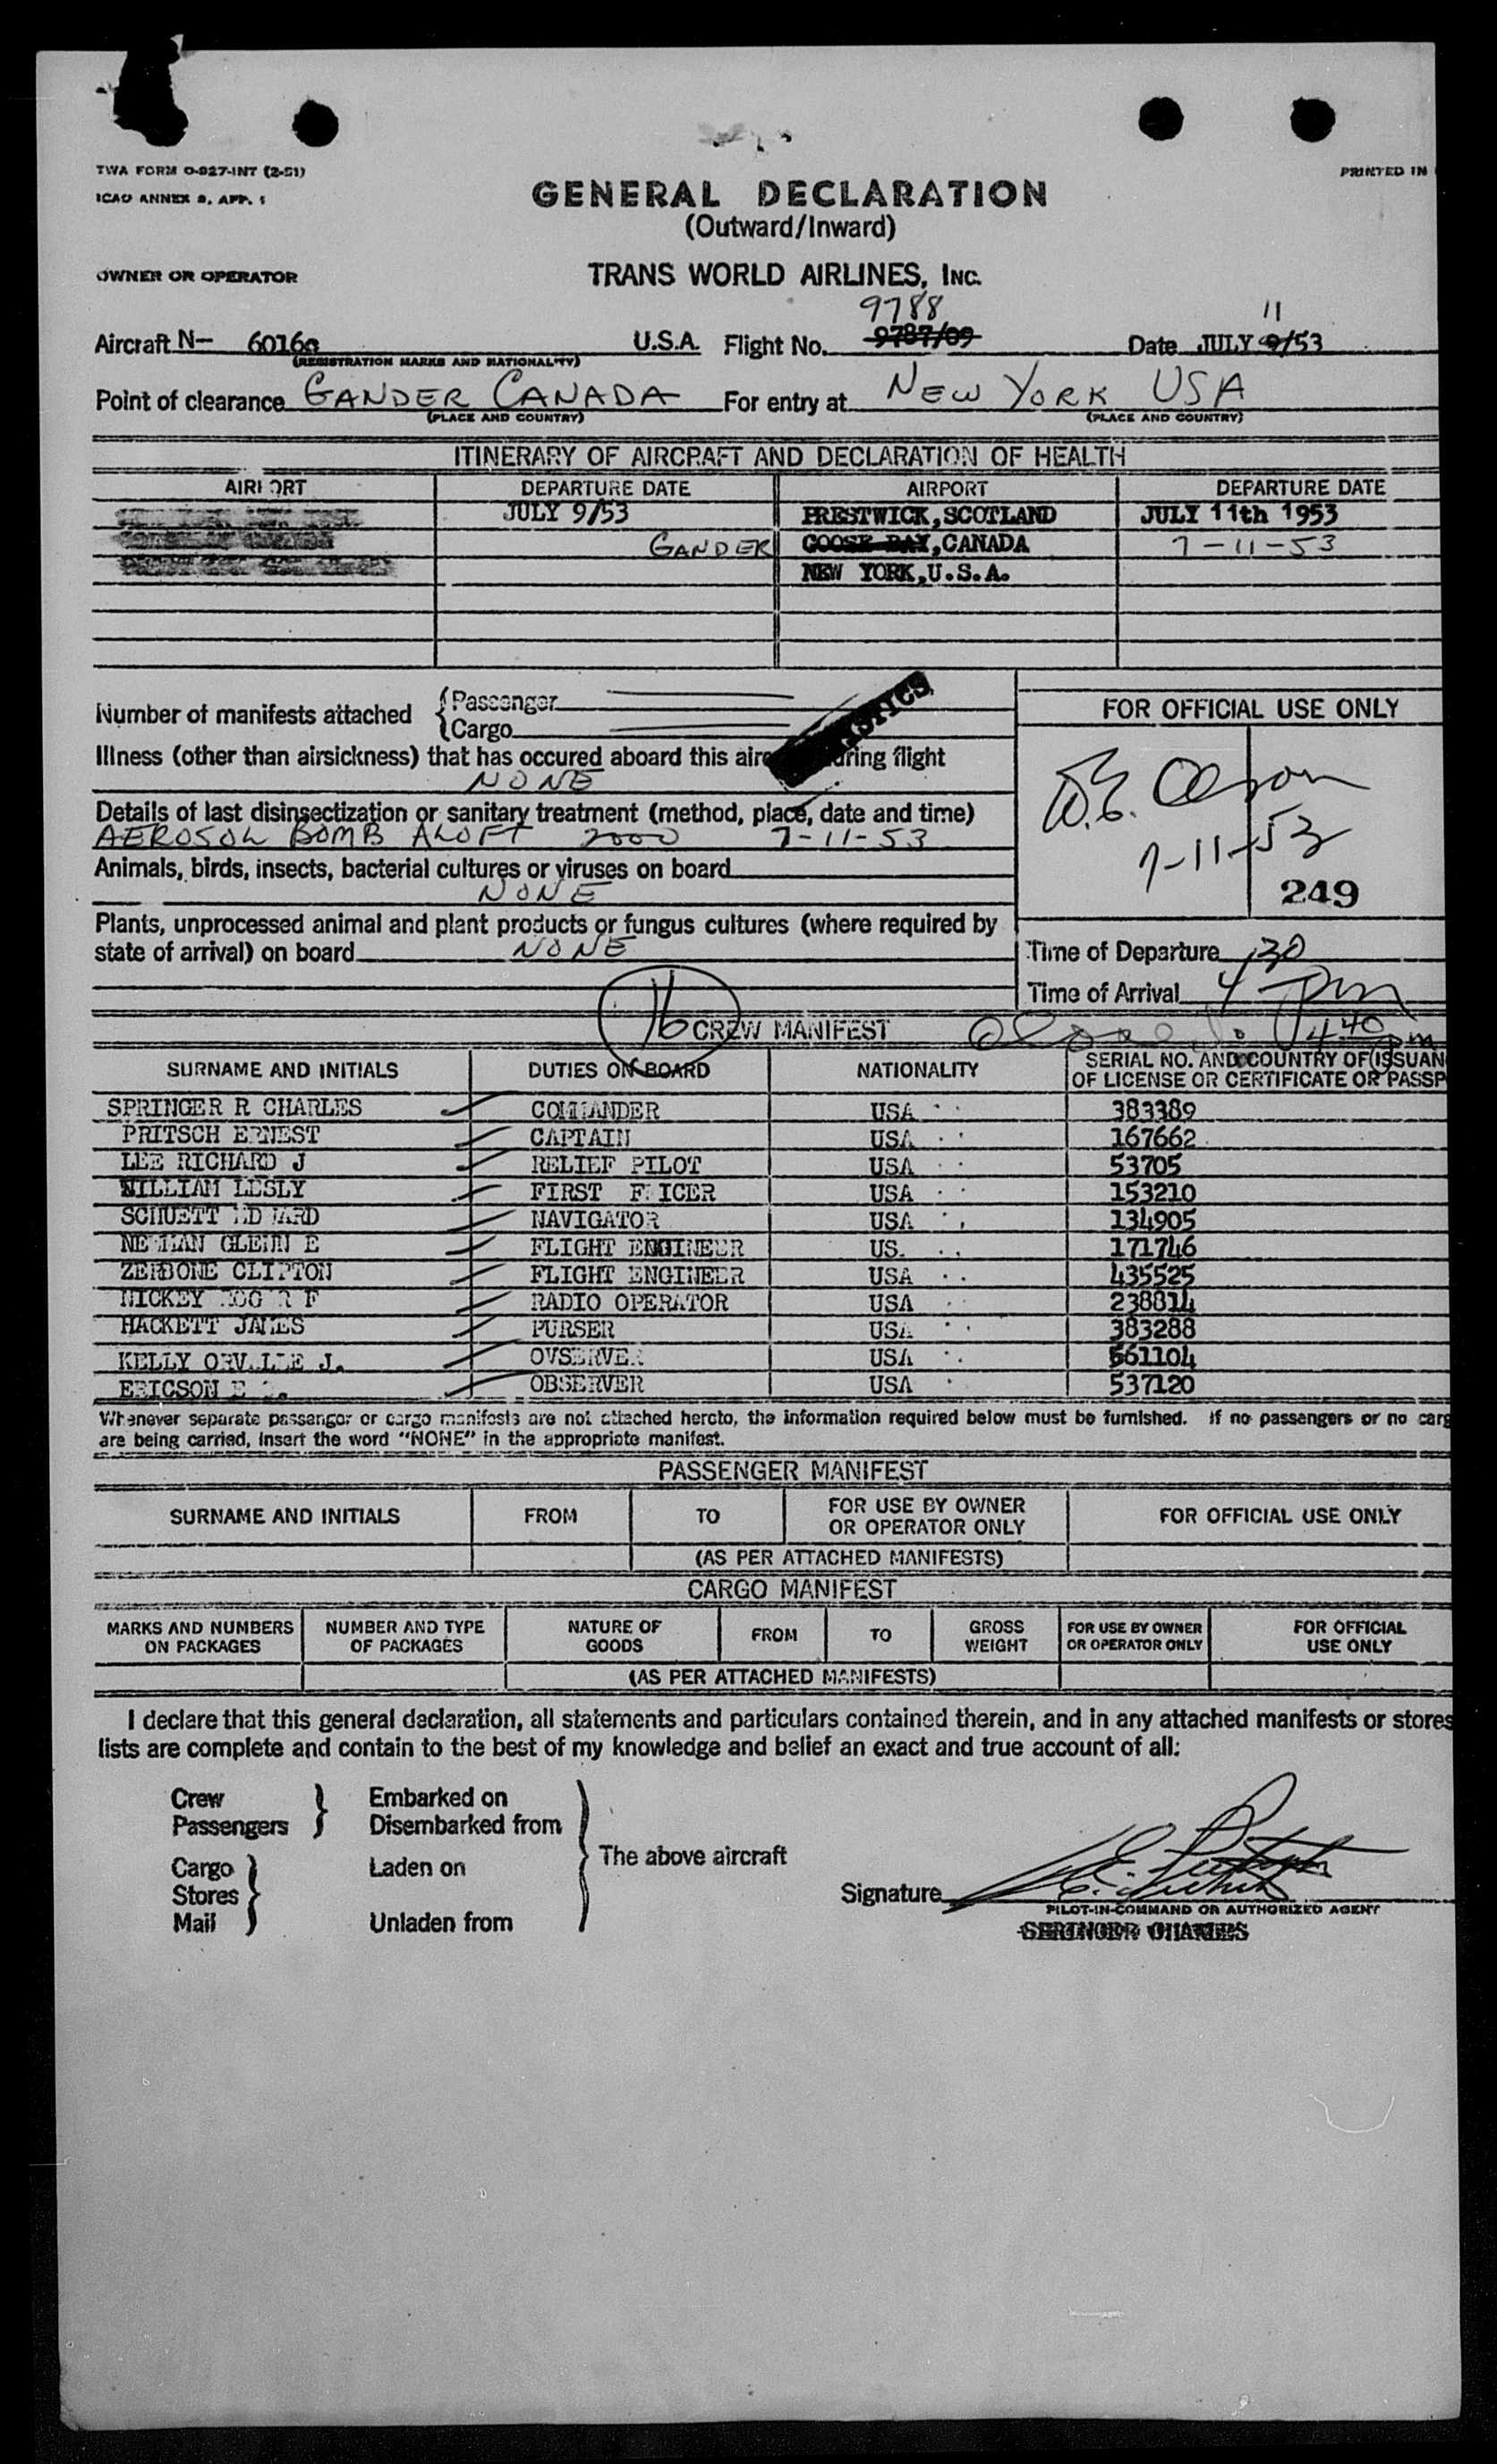 TWA FORM O-927-INT (2-51)
PRINTED IN
ICAO ANNEX 9, APP. 1
GENERAL DECLARATION
(Outward/Inward)
OWNER OR OPERATOR
TRANS WORLD AIRLINES, INC.
9788
11
Aircraft N- 6016 U.S.A. Flight No. 9787/09 Date JULY 9/53
(REGISTRATION MARKS AND NATIONALITY)
Point of clearance GANDER CANADA For entry at NEW YORK USA
(PLACE AND COUNTRY) (PLACE AND COUNTRY)
ITINERARY OF AIRCRAFT AND DECLARATION OF HEALTH
AIRPORT DEPARTURE DATE AIRPORT DEPARTURE DATE
JULY 9/53 PRESTWICK, SCOTLAND JULY 11th 1953
GANDER GOOSE BAY, CANADA 7-11-53
NEW YORK, U.S.A.
Number of manifests attached
Passenger
Cargo
FOR OFFICIAL USE ONLY
Illness (other than airsickness) that has occured aboard this during flight
NONE
Details of last disinsectization or sanitary treatment (method, place, date and time)
AEROSOL BOMB ALOFT 2000 7-11-53
W.E. Olson
7-11-53
249
Animals, birds, insects, bacterial cultures or viruses on board
NONE
Plants, unprocessed animal and plant products or fungus cultures (where required by
state of arrival) on board NONE
Time of Departure 130
Time of Arrival 4 pm
440 pm
16
CREW MANIFEST
SURNAME AND INITIALS DUTIES ON BOARD NATIONALITY SERIAL NO. AND COUNTRY OF ISSUAN
OF LICENSE OR CERTIFICATE OR PASSP
SPRINGER R CHARLES COMMANDER USA 383389
PRITSCH ERNEST CAPTAIN USA 167662
LEE RICHARD J RELIEF PILOT USA 53705
WILLIAM LESLY FIRST F ICER USA 153210
SCHUETT ED ARD NAVIGATOR USA 134905
NE MAN GLENN E FLIGHT ENGINEER US 171746
ZERBONE CLIFTON FLIGHT ENGINEER USA 435525
HICKEY F RADIO OPERATOR USA 238814
HACKETT JAMES PURSER USA 383288
KELLY ORVILLE J. OVSERVER USA 561104
ERICSON E OBSERVER USA 537120
Whenever separate passenger or cargo manifests are not attached hereto, the information required below must be furnished. If no passengers or no carg
are being carried, insert the word "NONE" in the appropriate manifest.
PASSENGER MANIFEST
SURNAME AND INITIALS FROM TO FOR USE BY OWNER OR OPERATOR ONLY FOR OFFICIAL USE ONLY
(AS PER ATTACHED MANIFESTS)
CARGO MANIFEST
MARKS AND NUMBERS ON PACKAGES NUMBER AND TYPE OF PACKAGES NATURE OF GOODS FROM TO GROSS WEIGHT FOR USE BY OWNER OR OPERATOR ONLY FOR OFFICIAL USE ONLY
(AS PER ATTACHED MANIFESTS)
I declare that this general declaration, all statements and particulars contained therein, and in any attached manifests or stores
lists are complete and contain to the best of my knowledge and belief an exact and true account of all:
Crew Embarked on
Passengers Disembarked from
The above aircraft
Cargo Laden on
Stores
Mail Unladen from
Signature
PILOT-IN-COMMAND OR AUTHORIZED AGENT
SPRINGER CHARLES